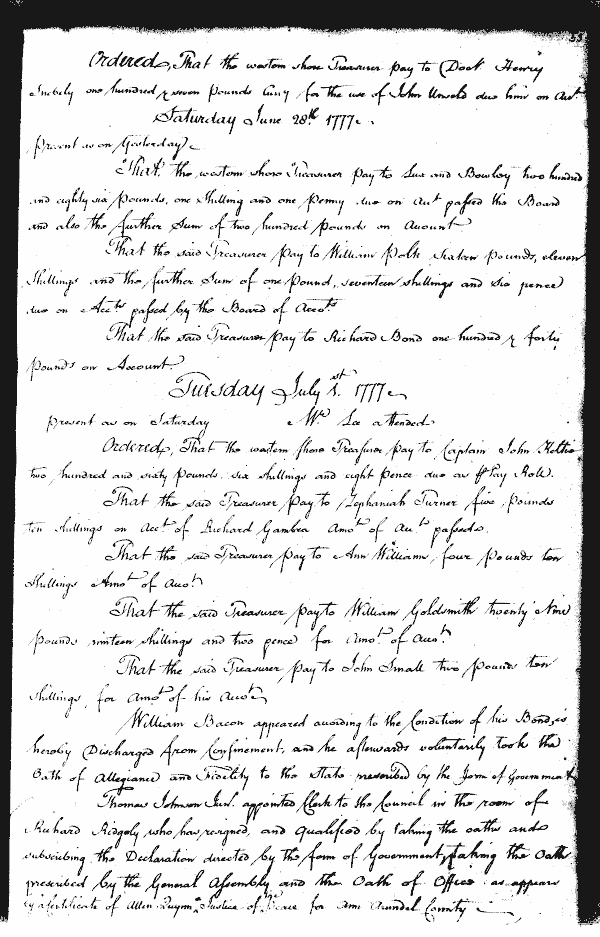 55
Ordered, That the western shore Treasurer pay to Doct. Henry
one hundred & seven pounds Curry for the use of John Unseld due him on Acct.
Saturday June 28th 1777.
present as on Yesterday
That the western shore Treasurer pay to Lux and Bowley two hundred
and eighty six pounds, one shilling and one penny due on Act passed this Board
and also the further Sum of two hundred pounds on Account
That the said Treasurer pay to William Polk Sixteen pounds, eleven
shillings and the further Sum of one pound, seventeen shillings and six pence
due on Accts passed by the Board of Accts
That the said Treasurer pay to Richard Bond one hundred & forty
pounds on Account.
Tuesday July 1st 1777
present as on Saturday Mr. Lee attended
Ordered, That the western shore Treasurer pay to Captain John
two hundred and sixty pounds six shillings and eight pence due as Pay Roll.
That the said Treasurer pay to Zephaniah Turner five pounds
ten shillings on Acct of Richard Gambra Amot of Act passed.
That the said Treasurer pay to Ann Williams, four pounds ten
shillings Amot of Acct.
That the said Treasurer pay to William Goldsmith twenty Nine
pounds ninteen shillings and two pence for Amot of Acct.
That the said Treasurer pay to John Small two pounds ten
shillings, for Amot of his Acct
William Bacon appeared according to the Condition of his Bond, is
hereby Discharged from Confinement, and he afterwards voluntarily took the
Oath of Allegiance and Fidelity to the State prescribed by the Form of Government
Thomas Johnson Jun. appointed Clerk to the Council in the room of
Richard Ridgely who has resigned, and Qualified by taking the oaths and
subscribing the Declaration directed by the form of Government, taking the Oath
prescribed by the General Assembly and the Oath of Office as appears
by a Certificate of Allen Quynn, Justice of Peace for Ann Arundel County